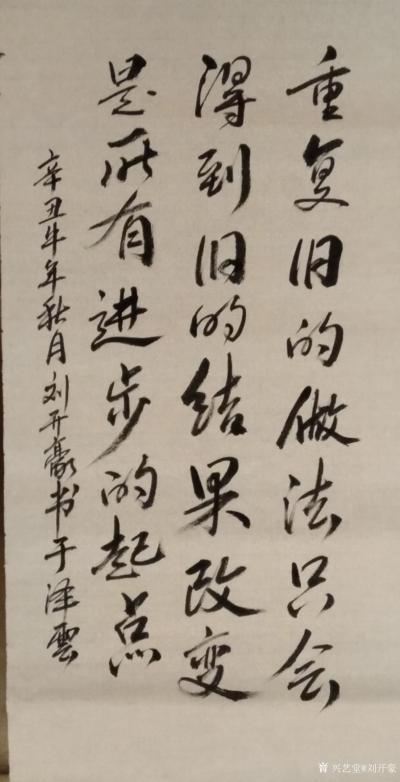 重复旧的做法只会
得到旧的结果改变
是所有进步的起点
辛丑牛年秋月刘开豪书于泽雲
兴艺堂@刘开豪